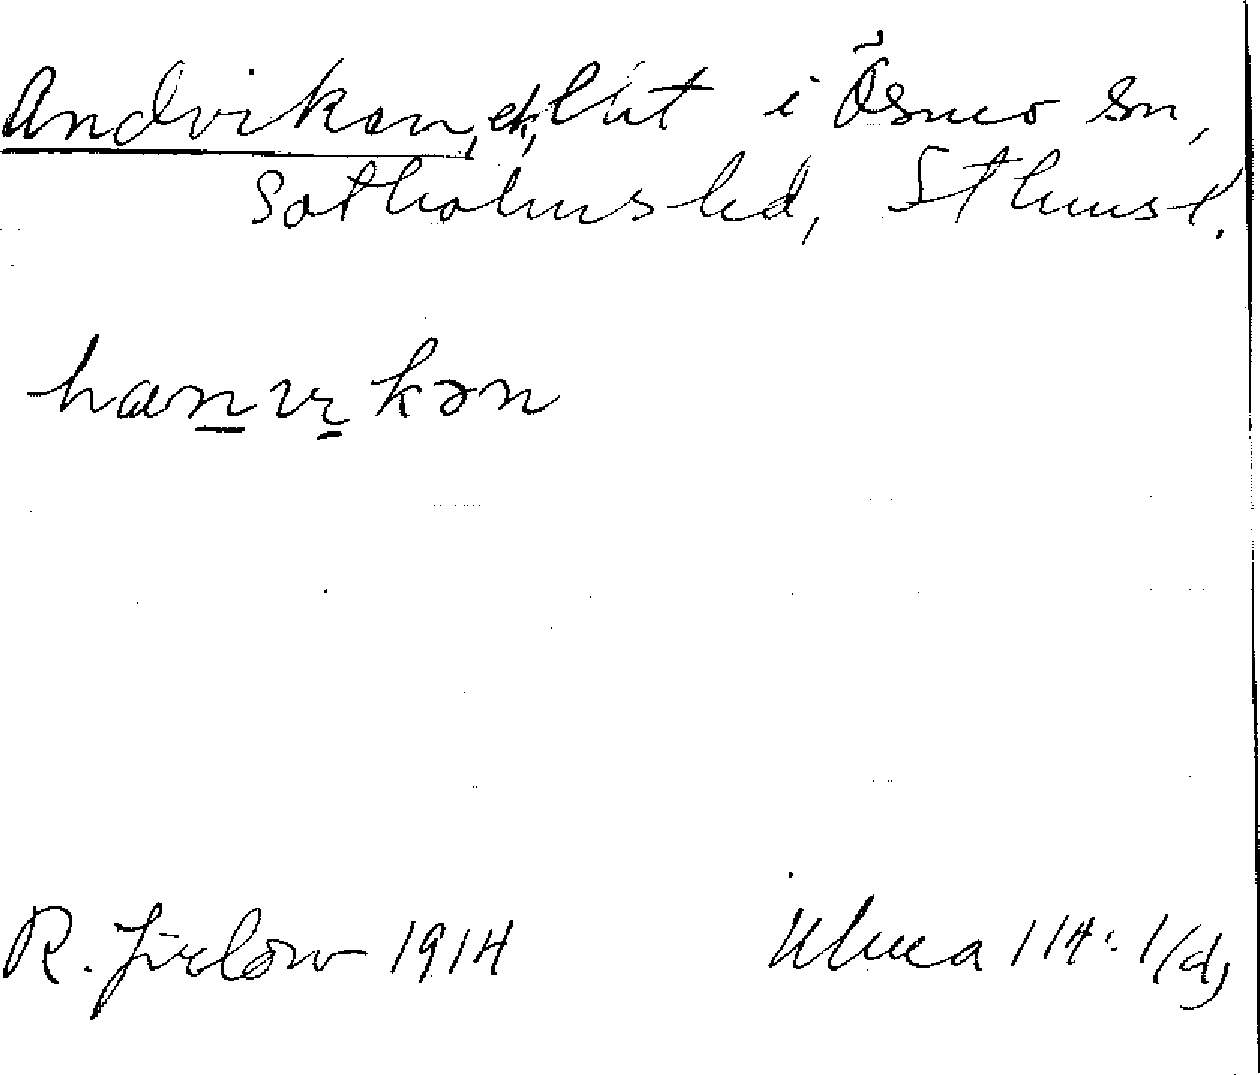 Andvikan, ek, lht i Ösmo sn,
Sotholms hd, Sthms l.
hanvikən
R. Jirlow 1914
Uluca 114:1/d,